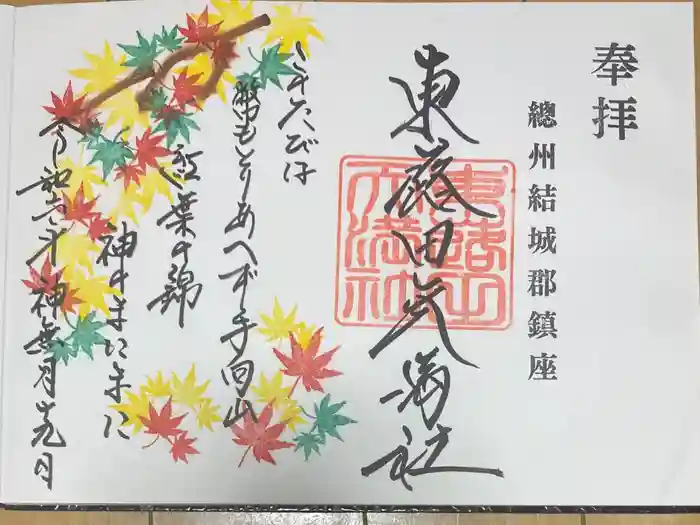 奉拝
總州結城郡鎮座
東蕗田天満社
東蕗田
天満社
このたびは
幣もとりあへず手向山
紅葉の錦
神のまにまに
令和六年神無月十九日